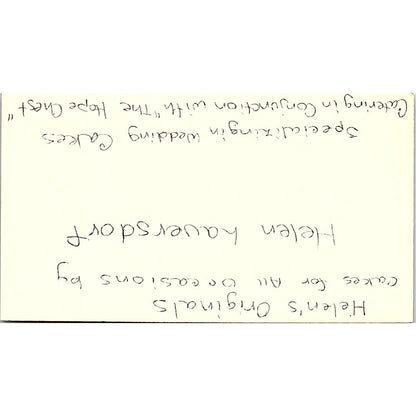 Helen's Originals
Cakes for All Occasions by
Helen Lauersdorf
Specializing in Wedding Cakes
Catering in Conjunction with "The Hope Chest"